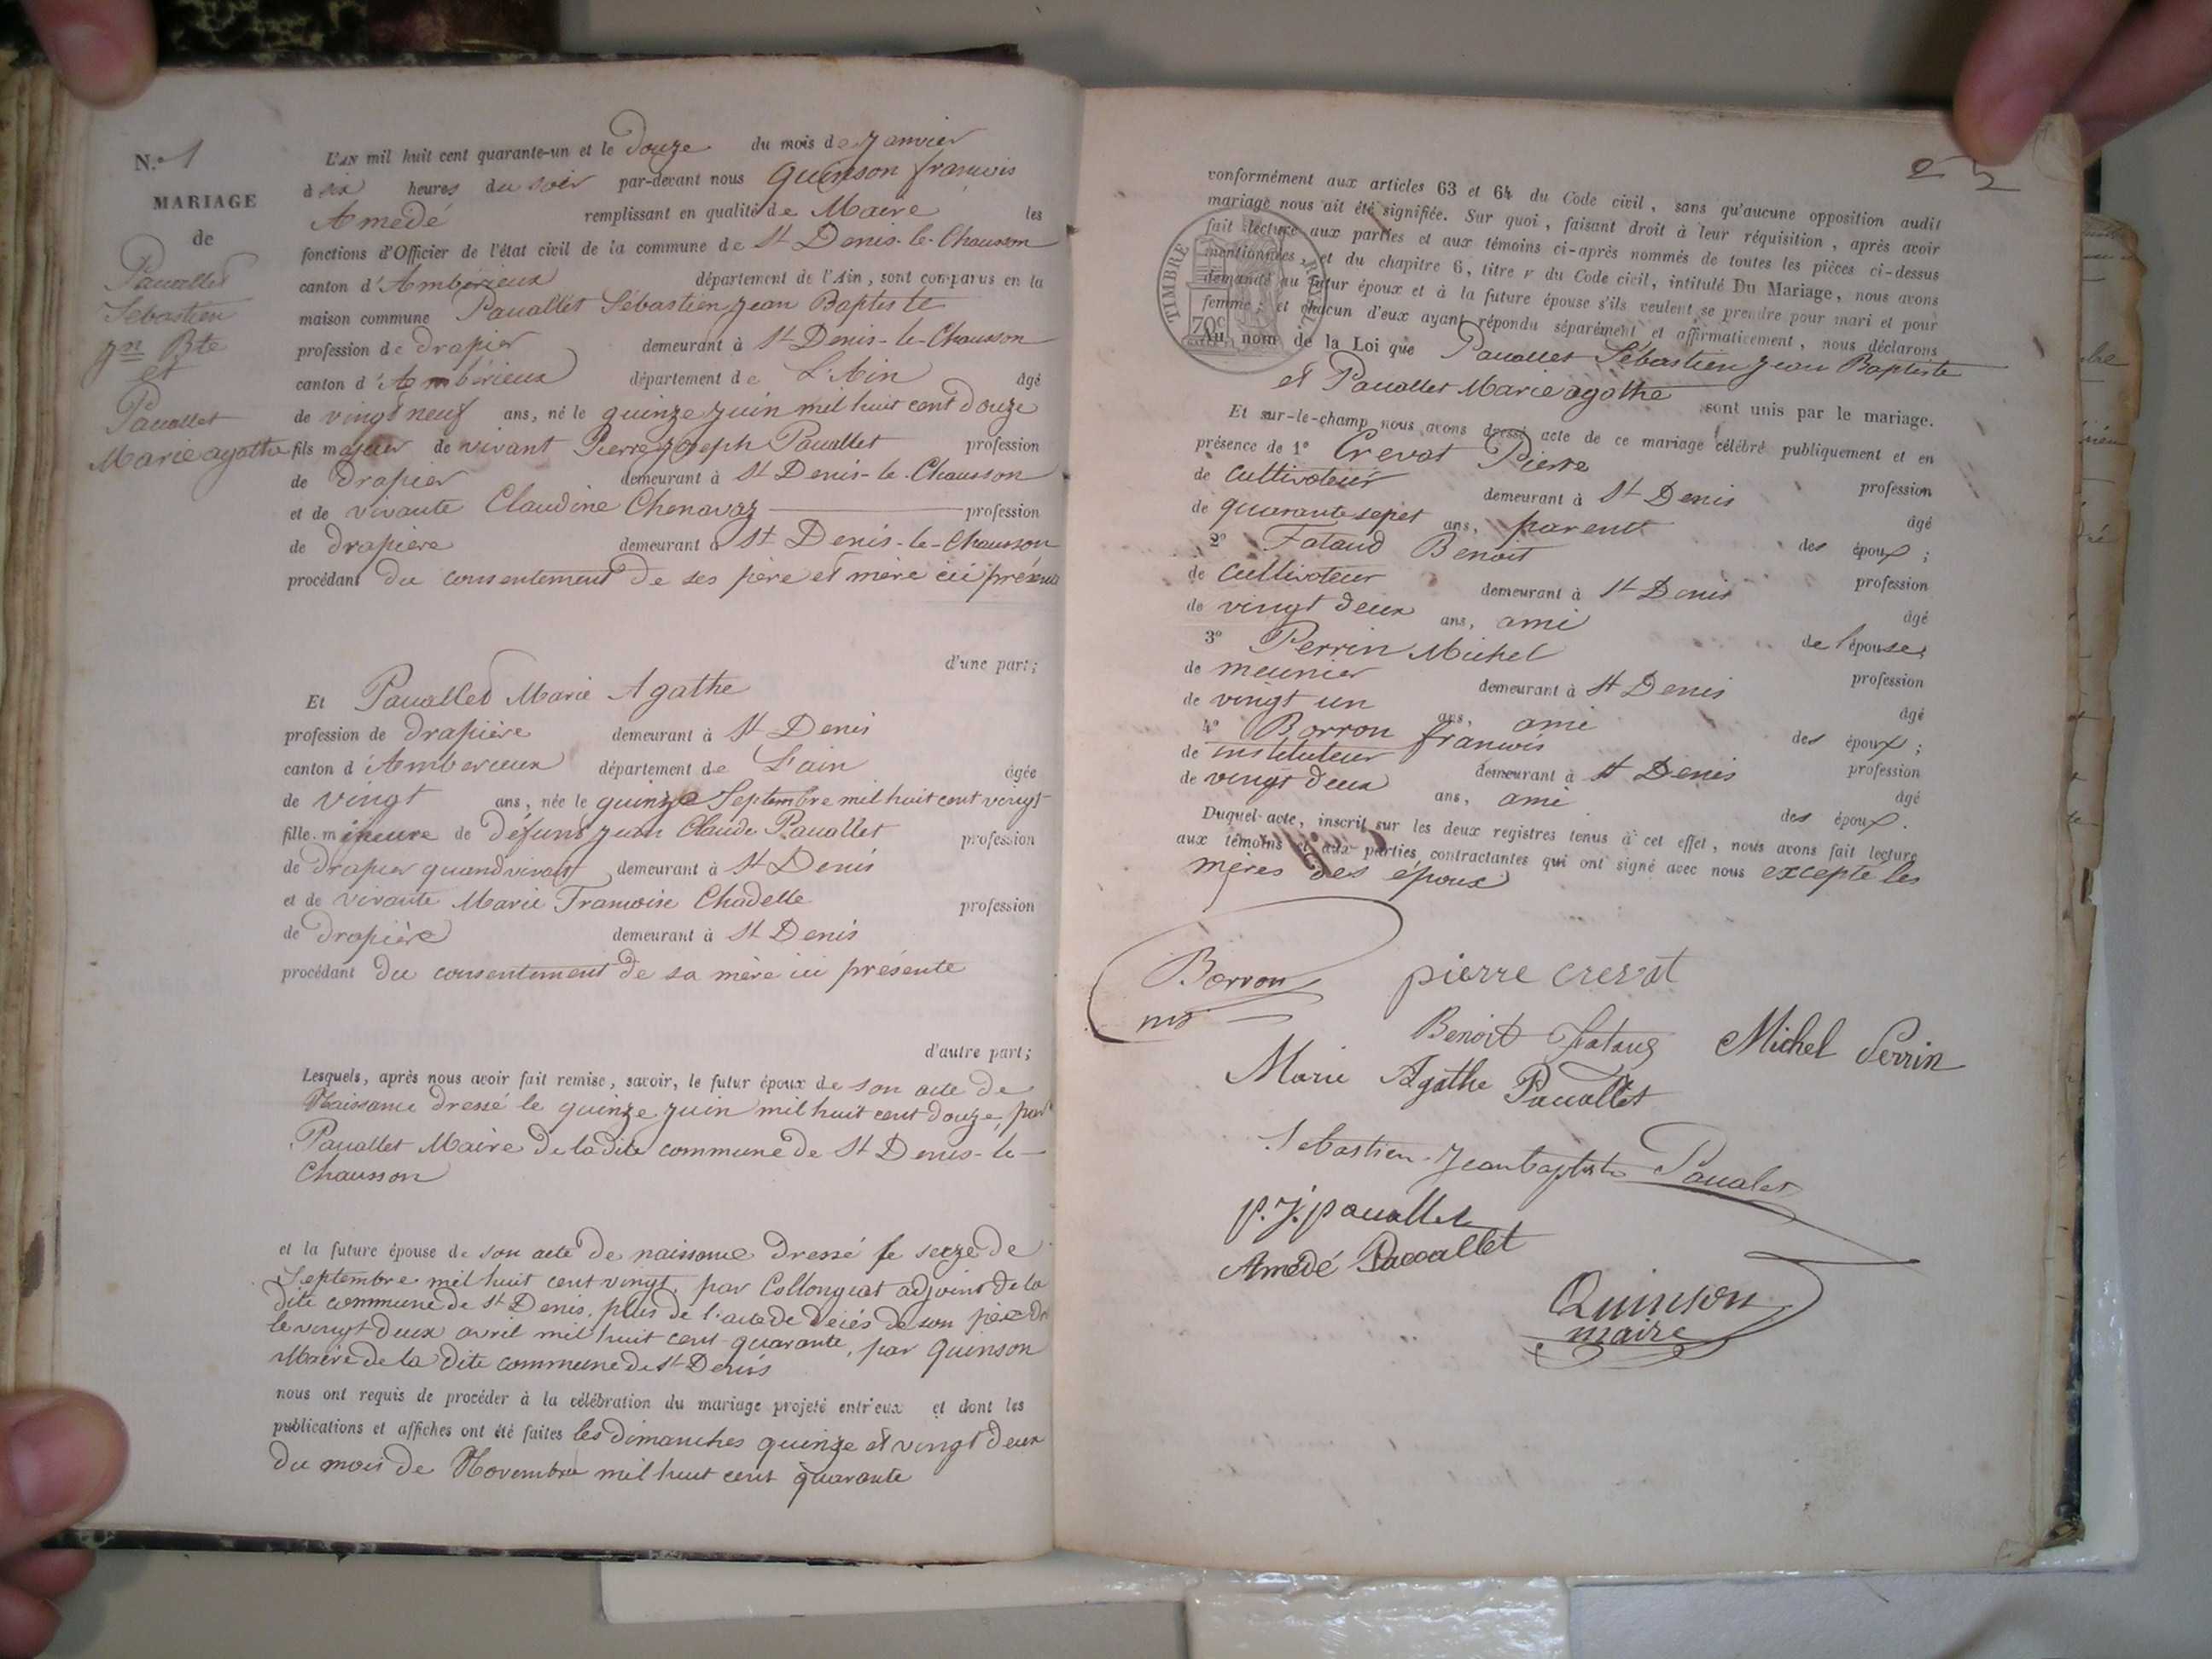 N.o 1
MARIAGE
de
Pauallet
Sebastien
Jn Bte
et
Pauallet
Marie agathe
L'AN mil huit cent quarante-un et le Douze du mois de Janvier
à six heures du soir par-devant nous Quinson françois
Amedé remplissant en qualité de Maire les
fonctions d'Officier de l'état civil de la commune de St Denis-le-Chausson
canton d'Ambérieux département de l'Ain, sont comparus en la
maison commune Pauallet Sébastien Jean Baptiste
profession de drapier demeurant à St Denis-le-Chausson
canton d'Ambérieux département de L'Ain âgé
de vingt neuf ans, né le quinze Juin mil huit cent Douze
fils majeur de vivant Pierre Joseph Pauallet profession
de Drapier demeurant à St Denis-le-Chausson
et de vivante Claudine Chenavaz profession
de drapière demeurant à St Denis-le-Chausson
procédant du consentement de ses père et mère ici présents
d'une part;
Et Pauallet Marie Agathe
profession de drapière demeurant à St Denis
canton d'Amberieux département de L'ain âgée
de vingt ans, née le quinze Septembre mil huit cent vingt
fille mineure de Défunt Jean Claude Pauallet profession
de Drapier quand vivait demeurant à St Denis
et de vivante Marie Françoise Chadelle profession
de Drapière demeurant à St Denis
procédant du consentement de sa mère ici présente
d'autre part;
Lesquels, après nous avoir fait remise, savoir, le futur époux de son acte de
Naissance dressé le quinze Juin mil huit cent douze, par
Pauallet Maire de la dite commune de St Denis-le-
Chausson
et la future épouse de son acte de naissance Dressé le seize de
Septembre mil huit cent vingt, par Collongeat adjoint de la
dite commune de St Denis, plus de l'acte de décès de son père
le vingt deux avril mil huit cent quarante, par Quinson
Maire de la dite commune de St Denis
nous ont requis de procéder à la célébration du mariage projeté entr'eux et dont les
publications et affiches ont été faites les dimanches quinze et vingt deux
du mois de Novembre mil huit cent quarante
25
conformément aux articles 63 et 64 du Code civil, sans qu'aucune opposition audit
mariage nous ait été signifiée. Sur quoi, faisant droit à leur réquisition, après avoir
fait lecture aux parties et aux témoins ci-après nommés de toutes les pièces ci-dessus
mentionnées, et du chapitre 6, titre v du Code civil, intitulé Du Mariage, nous avons
demandé au futur époux et à la future épouse s'ils veulent se prendre pour mari et pour
femme; et chacun d'eux ayant répondu séparément et affirmativement, nous déclarons
Au nom de la Loi que Pauallet Sébastien Jean Baptiste
et Pauallet Marie agathe sont unis par le mariage.
TIMBRE ROYAL
70c
Et sur-le-champ nous avons dressé acte de ce mariage célébré publiquement et en
présence de 1o Crevat Pierre profession
de cultivateur demeurant à St Denis âgé
de quarante sepet ans, parent des époux;
2o Fataud Benoit profession
de cultivateur demeurant à St Denis âgé
de vingt deux ans, ami de l'épouse;
3o Perrin Michel profession
de meunier demeurant à St Denis âgé
de vingt un ans, ami des époux;
4o Borron françois profession
de instituteur demeurant à St Denis âgé
de vingt deux ans, ami des époux.
Duquel acte, inscrit sur les deux registres tenus à cet effet, nous avons fait lecture
aux témoins et aux parties contractantes qui ont signé avec nous excepté les
mères des époux
Borron
pierre crevat
Benoit Fataud Michel Perrin
Marie Agathe Pauallet
Sebastien Jean baptiste Pauallet
p. J. pauallet
Amédé Pauallet
Quinson
maire